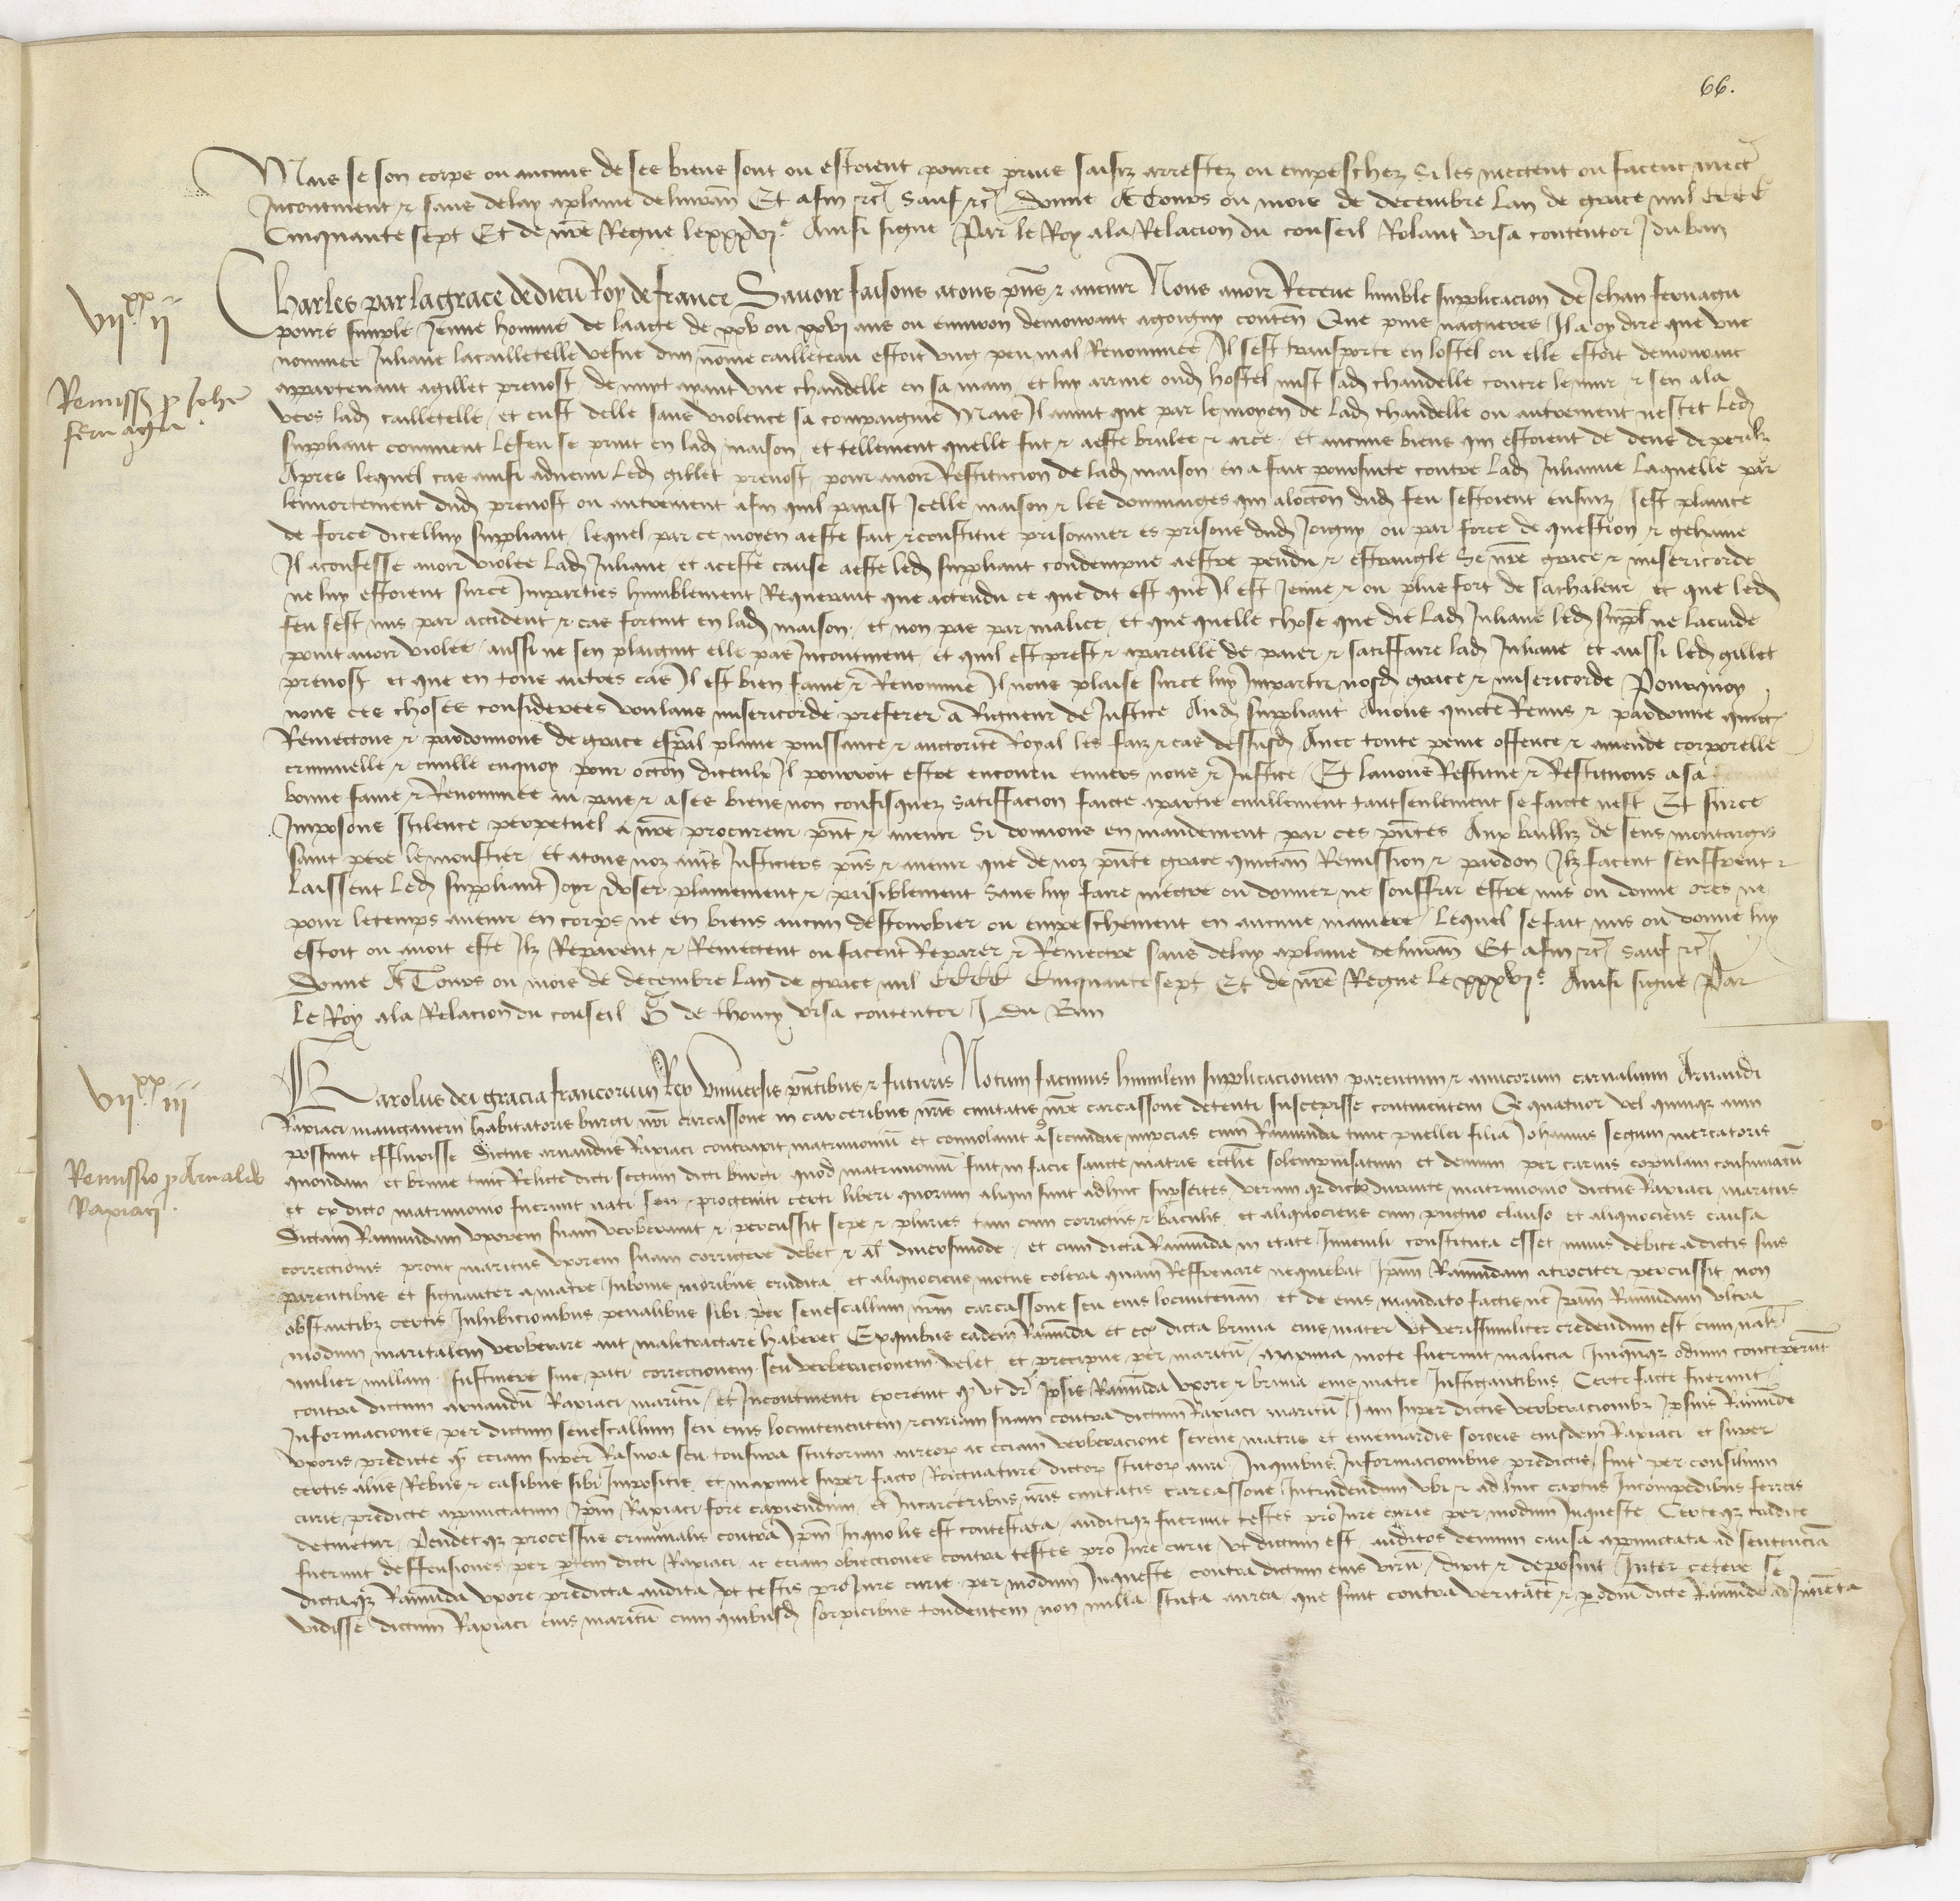 66.
Mais se son corps ou aucuns de ses biens sont ou estoient pource prins saisiz arrestez ou empeschez Si les mectent ou facent mectr
Incontinent & sans delay a plaine delivrañ Et afin &c Sauf &c Donne A Tours ou mois de decembre Lan de grace mil CCCC
Cinquante sept Et de nr̃e Regne le xxxvi.e Ainsi signe Par le Roy a la Relacion du conseil Rolant visa contentor J du ban
vii.xx ii
Remissio p Johe
fernagu.
Charles par la grace de dieu Roy de france Savoir faisons a tous p̃ns & avenir Nous avoir Receue lumble supplicacion de Jehan fernagu
povre simple Jeune homme de laage de xxv ou xxvi ans ou environ demourant a Joigny conten Que puis nagueres Il a oy dire que une
nommee Juliane la cailletelle vefve dun nõme cailleteau estoit ung peu mal Renommee Il sest transporte en lostel ou elle estoit demourant
appartenant a gillet prevost de nuyt ayant une chandelle en sa main et luy arrive oud hostel mist sad chandelle contre le mur & sen ala
vers lad cailletelle et eust delle sans violence sa compaignie Mais Il avint que par le moyen de lad chandelle ou autrement ne scet led
suppliant comment le feu se print en lad maison et tellement quelle fut & a este brulee & arce et aucuns biens qui estoient de dens de periz
Apres lequel cas ainsi advenu led gillet prevost pour avoir Restitucion de lad maison en a fait poursuite contre lad Juliane laquelle par
lennortement dud prevost ou autrement afin quil payast Icelle maison & les dommaiges qui a loccõn dud feu sestoient ensuiz sest plainte
de force dicelluy suppliant lequel par ce moyen a este fait & constitue prisonnier es prisons dud Joigny ou par force de question & gehaine
Il a confesse avoir violee lad Juliane et a ceste cause a este led suppliant condempne a estre pendu & estrangle Se nr̃e grace & misericorde
ne luy estoient sur ce Imparties humblement Requerant que actendu ce que dit est que Il est Jeune & ou plus fort de sa chaleur et que led
feu sest mis par accident & cas fortuit en lad maison et non pas par malice et que quelle chose que die lad Juliane led suppl ne la cuide
point avoir violee aussi ne sen plaignit elle pas Incontinent et quil est prest & appareille de paier & satiffaire lad Juliane et aussi led gillet
prevost et que en tous autres cas Il est bien fame & Renomme Il nous plaise sur ce luy Impartir nosd grace & misericorde Pourquoy
nous ces choses considerees voulans misericorde preferer a Rigueur de Justice Aud suppliant Avons quicte Remis & pardonne quict
Remectons & pardonnons de grace esp̃al plaine puissance & auctorite Royal les faiz & cas dessusd Avec toute peine offence & amende corporelle
criminelle & civille en quoy pour occõn diceulx Il pourroit estre encouru envers nous & Justice Et lavons Restitue & Restituons a sa
bonne fame & Renommee au pais & a ses biens non confisquez satiffacion faicte a partie civillement tant seulement se faicte nest Et sur ce
Imposons silence perpetuel a nr̃e procureur p̃nt & avenir Si donnons en mandement par ces p̃ntes Aux bailliz de Sens montargis
saint pere le monstier et a tous noz aut̃s Justiciers p̃ns & avenir que de noz p̃nte grace quictañ Remission & pardon Ilz facent seuffrent &
laissent led suppliant Joyr & user plainement & paisiblement sans luy faire mectre ou donner ne souffrir estre mis ou donne ores ne
pour le temps avenir en corps ne en biens aucun destourbier ou empeschement en aucune maniere lequel se fait mis ou donne luy
estoit ou avoit este Ilz Reparent & Remectent ou facent Reparer & Remectre sans delay a plaine delivrañ Et afin &c sauf &c
Donne A Tours ou mois de decembre Lan de grace mil CCCC Cinquante sept Et de nr̃e Regne le xxxvi.e Ainsi signe Par
le Roy a la Relacion du conseil G de thoucy visa contentor J Du Ban
vii.xx iii
Remissio p Arnaldo
Raxiaci.
Karolus dei gracia francorum Rex Universis p̃ntibus & futuris Notum facimus humilem supplicacionem parentum & amicorum carnalium Arnaudi
Raxiaci manganerii habitatoris burgi nr̃i carcassone in carceribus nr̃is civitatis nr̃e carcassone detenti suscepisse continentem Q quatuor vel quinqz anni
possunt effluxisse Dictus arnaudus Raxiaci contraxit matrimoniũ et convolavit ad secundas nupcias cum Raimunda tunc puella filia Johannis segum mercatoris
quondam et brune tunc Relicte dicti segum dicti burgi quod matrimoniũ fuit in facie sancte matris ecclie solempnisatum et demum per carnis copulam consumatũ
et ex dicto matrimonio fuerunt nati seu procreati certi liberi quorum aliqui sunt adhuc sup̃stites verum qz dicto durante matrimonio dictus Raxiaci maritus
dictam Raimundam uxorem suam verberavit & percussit sepe & pluries tam cum corrigiis & baculis et aliquociens cum pugno clauso et aliquociens causa
correctionis prout maritus uxorem suam corrigere debet & al̃ diversimode et cum dicta Raimũda in etate Juvenili constituta esset minus debite a dictis suis
parentibus et signanter a matre In bonis moribus erudita et aliquociens motus colera quam Reffrenare nequiebat Ip̃am Raimũdam atrociter percussit non
obstantibz certis Inhibicionibus penalibus sibi per senescallum nr̃m carcassone seu eius locumteneñ et de eius mandato factis ne Ip̃am Raimũdam ultra
modum maritalem verberare aut maletractare haberet Ex quibus eadem Raimũda et ec̃ dicta bruna eius mater ut verissimiliter credendum est cum nulla
mulier nullam sustinere sive pati correctionem seu verberacionem velet et precipue per maritũ maxima mote fuerunt malicia Iniquũqz odium conceperũt
contra dictum arnaudũ Raxiaci maritũ et Incontinenti exercuit q ut dr̃ Ip̃is Raimũda uxore & bruna eius matre Instigantibus Certe facte fuerunt
Informaciones per dictum senescallum seu eius locumtenentem & curiam suam contra dictum Raxiaci maritũ tam super dictis verberacionibz Ip̃ius Raimũde
uxoris predicte q̃ eciam super Rasura seu tonsura scutorum aureoꝝ ac eciam verberacione serene matris et emenardis sororis eiusdem Raxiaci et super
certis aliis Rebus & casibus sibi Impositis et maxime super facto dictoꝝ scutoꝝ auri In quibus Informacionibus predictis fuit per consilium
curie predicte apunctatum Ip̃m Raxiaci fore capiendum et In carceribus nr̃is civitatis carcassone Intrudendum ubi & ad huc captus In compedibus ferreis
detinetur Pendetqz processus criminalis contra Ip̃m In quo lis est contestata auditiqz fuerunt testes pro Jure curie per modum Inqueste Certeqz tradite
fuerunt deffensiones per p̃tem dicti Raxiaci ac eciam obiectiones contra testes pro Jure curie ut dictum est auditos demum causa appunctata ad sentenciã
dictaqz Raimũda uxore predicta audita ut testis pro Jure curie per modum Inqueste contra dictum eius virũ dixit & deposuit Inter cetera se
vidisse dictum Raxiaci eius maritũ cum quibusd forpicibus tondentem non nulla scuta aurea que sunt contra veritatẽ & p odiũ dicte Raimũde ad Invẽta